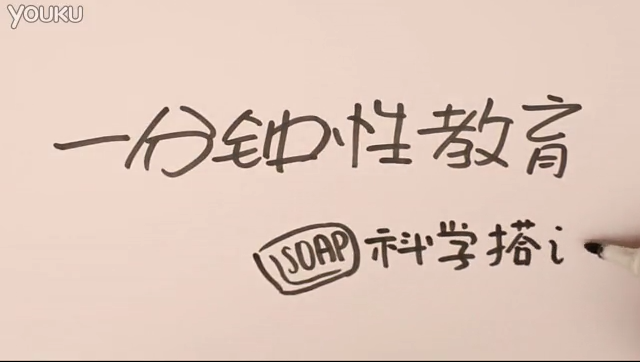 YOUKU
一分钟性教育
SOAP 科学搭i